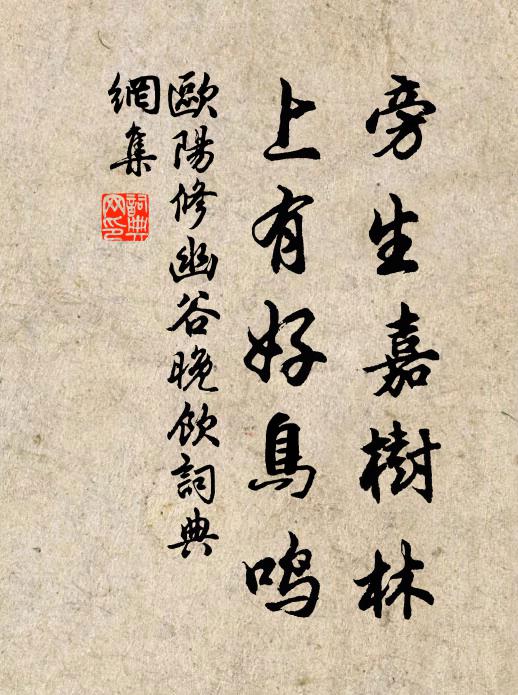 旁生嘉樹林
上有好鳥鳴
歐陽修幽谷晚飲詞典
網集
詞典
网印